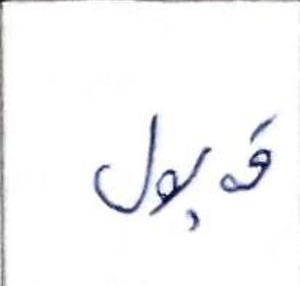 قبول